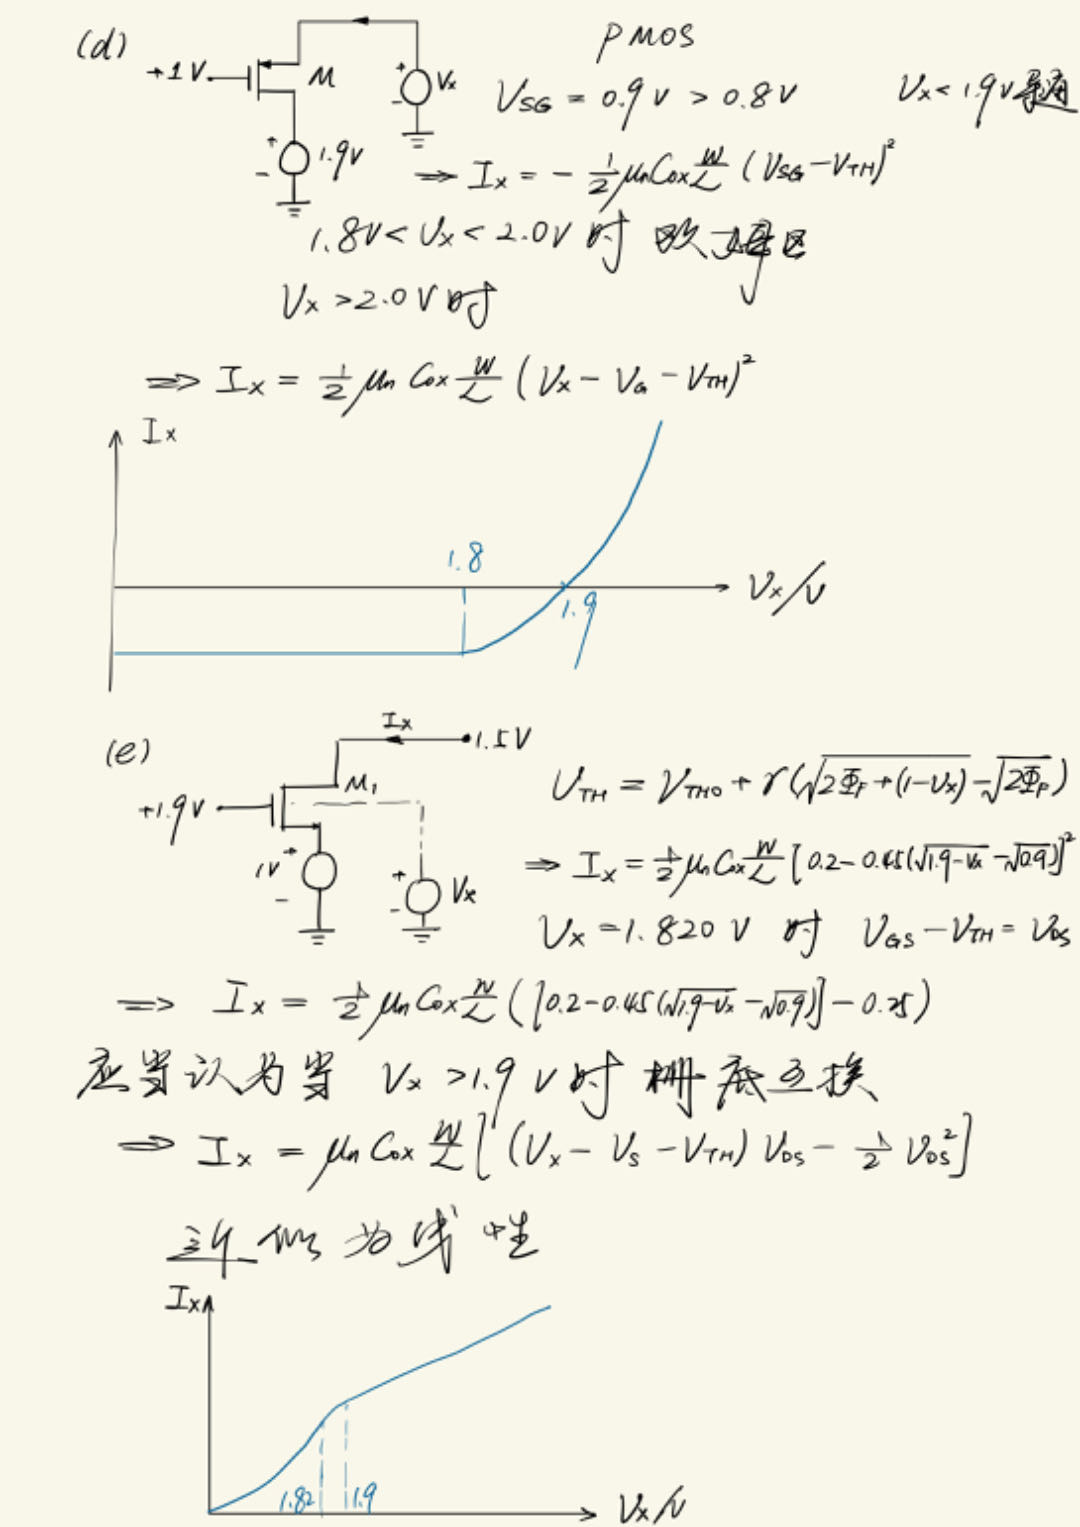 (d)
PMOS
+1V
M
+
-
Vx
V_SG = 0.9V > 0.8V
Vx < 1.9V导通
+
-
1.9V
⇒ Ix = - 1/2 μn Cox W/L (V_SG - V_TH)²
1.8V < Vx < 2.0V 时 欧姆区
Vx > 2.0V 时
⇒ Ix = 1/2 μn Cox W/L (Vx - V_G - V_TH)²
Ix
1.8
1.9
Vx/V
(e)
Ix
1.5V
M₁
+1.9V
1V
+
-
+
-
Vx
V_TH = V_TH0 + γ(√2Φ_F + (1-Vx) - √2Φ_F)
⇒ Ix = 1/2 μn Cox W/L [0.2 - 0.45(√1.9-Vx - √0.9)]²
Vx = 1.820 V 时 V_GS - V_TH = V_DS
⇒ Ix = 1/2 μn Cox W/L ([0.2 - 0.45(√1.9-Vx - √0.9)] - 0.25)
应当认为当 Vx > 1.9V 时 栅底互换
⇒ Ix = μn Cox W/L [(Vx - V_S - V_TH) V_DS - 1/2 V_DS²]
近似为线性
Ix
1.82
1.9
Vx/V